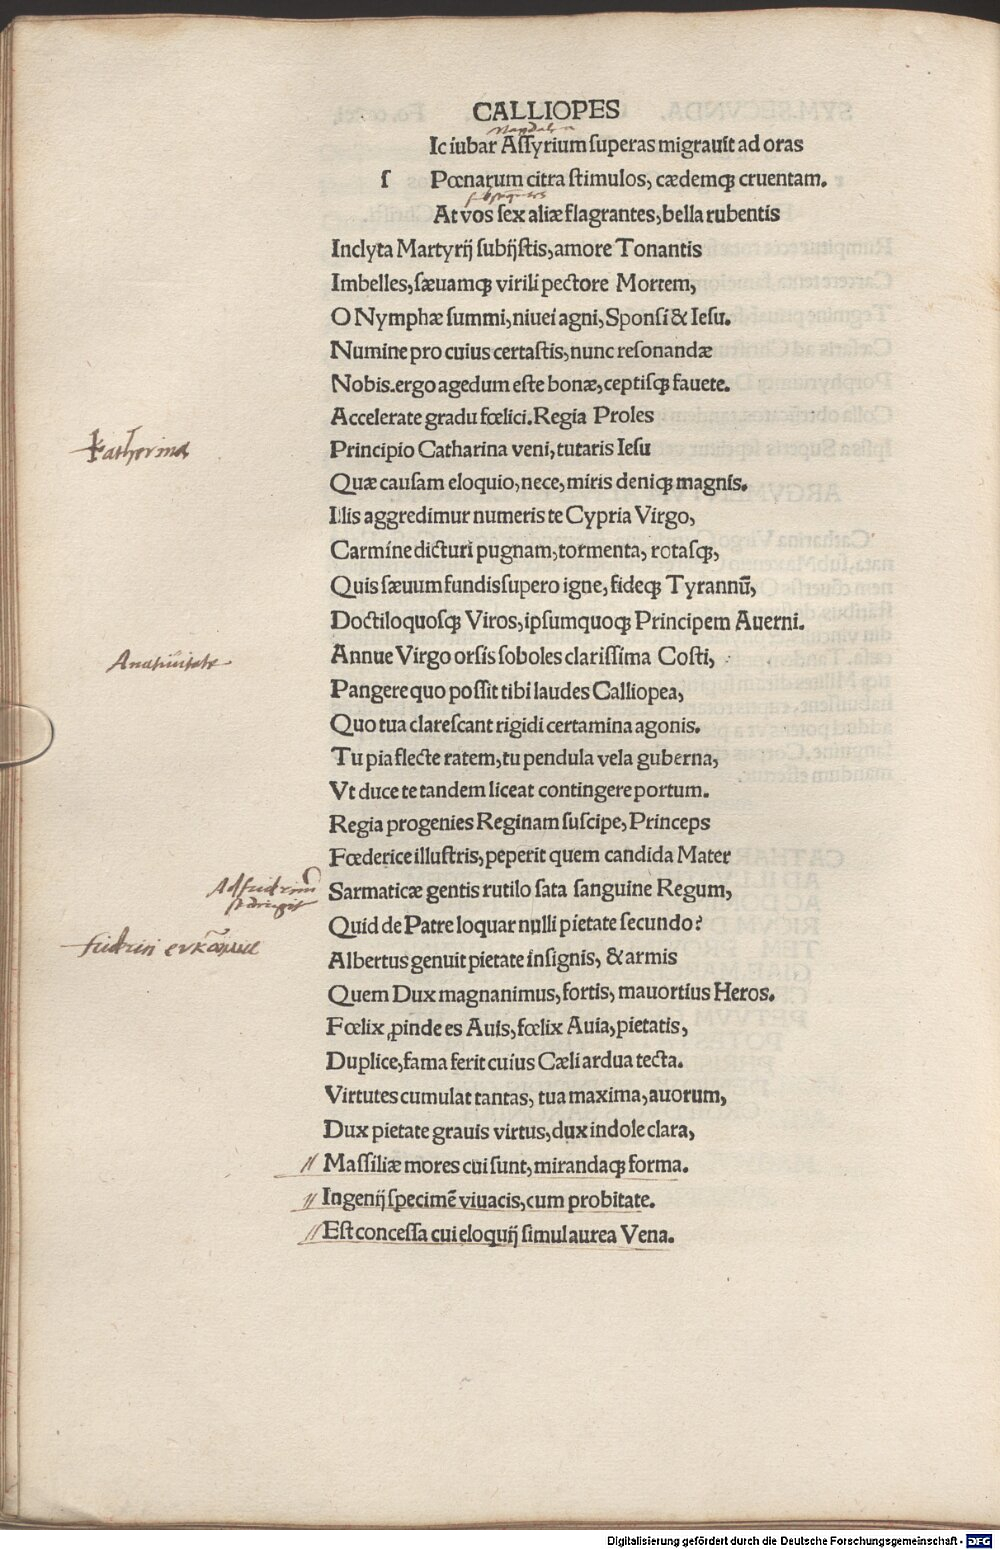 CALLIOPES
Magdalena
Ic iubar Aſſyrium ſuperas migrauit ad oras
ſ Pœnarum citra ſtimulos, cædemqꝫ cruentam.
At vos ſex aliæ flagrantes, bella rubentis
Inclyta Martyrij ſubijſtis, amore Tonantis
Imbelles, ſæuamqꝫ virili pectore Mortem,
O Nymphæ ſummi, niuei agni, Sponſi & Ieſu.
Numine pro cuius certaſtis, nunc reſonandæ
Nobis. ergo agedum eſte bonæ, ceptiſqꝫ fauete.
Accelerate gradu fœlici. Regia Proles
Katherina
Principio Catharina veni, tutaris Ieſu
Quæ cauſam eloquio, nece, miris deniqꝫ magnis.
Illis aggredimur numeris te Cypria Virgo,
Carmine dicturi pugnam, tormenta, rotaſqꝫ,
Quis ſæuum fundis ſupero igne, fideqꝫ Tyrannū,
Doctiloquoſqꝫ Viros, ipſumquoqꝫ Principem Auerni.
Annue Virgo orſis ſoboles clariſſima Coſti,
Pangere quo poſſit tibi laudes Calliopea,
Quo tua clareſcant rigidi certamina agonis.
Tu pia flecte ratem, tu pendula vela guberna,
Vt duce te tandem liceat contingere portum.
Regia progenies Reginam ſuſcipe, Princeps
Fœderice illuſtris, peperit quem candida Mater
Sarmaticæ gentis rutilo ſata ſanguine Regum,
Quid de Patre loquar nulli pietate ſecundo?
Albertus genuit pietate inſignis, & armis
Quem Dux magnanimus, fortis, mauortius Heros.
Fœlix ꝓinde es Auis, fœlix Auia, pietatis,
Duplice, fama ferit cuius Cæli ardua tecta.
Virtutes cumulat tantas, tua maxima, auorum,
Dux pietate grauis virtus, dux indole clara,
Maſſiliæ mores cui ſunt, mirandaqꝫ forma.
Ingenij ſpecimē viuacis, cum probitate.
Eſt conceſſa cui eloquij ſimul aurea Vena.
Digitalisierung gefördert durch die Deutsche Forschungsgemeinschaft - DFG